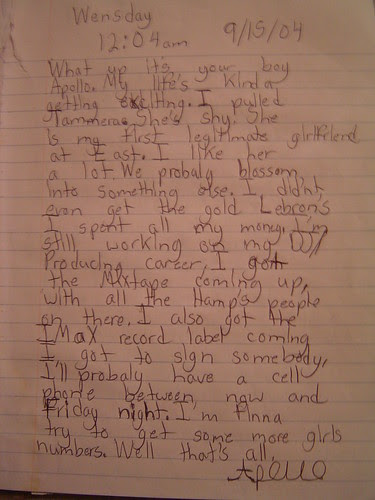 Wensday
12:04am 9/15/04
What up it's your boy
Apollo. My life's kinda
getting exciting. I pulled
Tammera. She's shy. She
is my first legitimate girlfriend
at East. I like her
a lot. We probaly blossom
into something else. I didn't
even get the gold Lebron's
I spent all my money. I'm
still working on my DJ/
Producing career, I got
the Mixtape coming up,
with all the Hamp's people
on there. I also got the
IMaX record label coming
I got to sign somebody,
I'll probaly have a cell
phone between, now and
Friday night. I'm finna
try to get some more girls
numbers. Well that's all,
Apollo